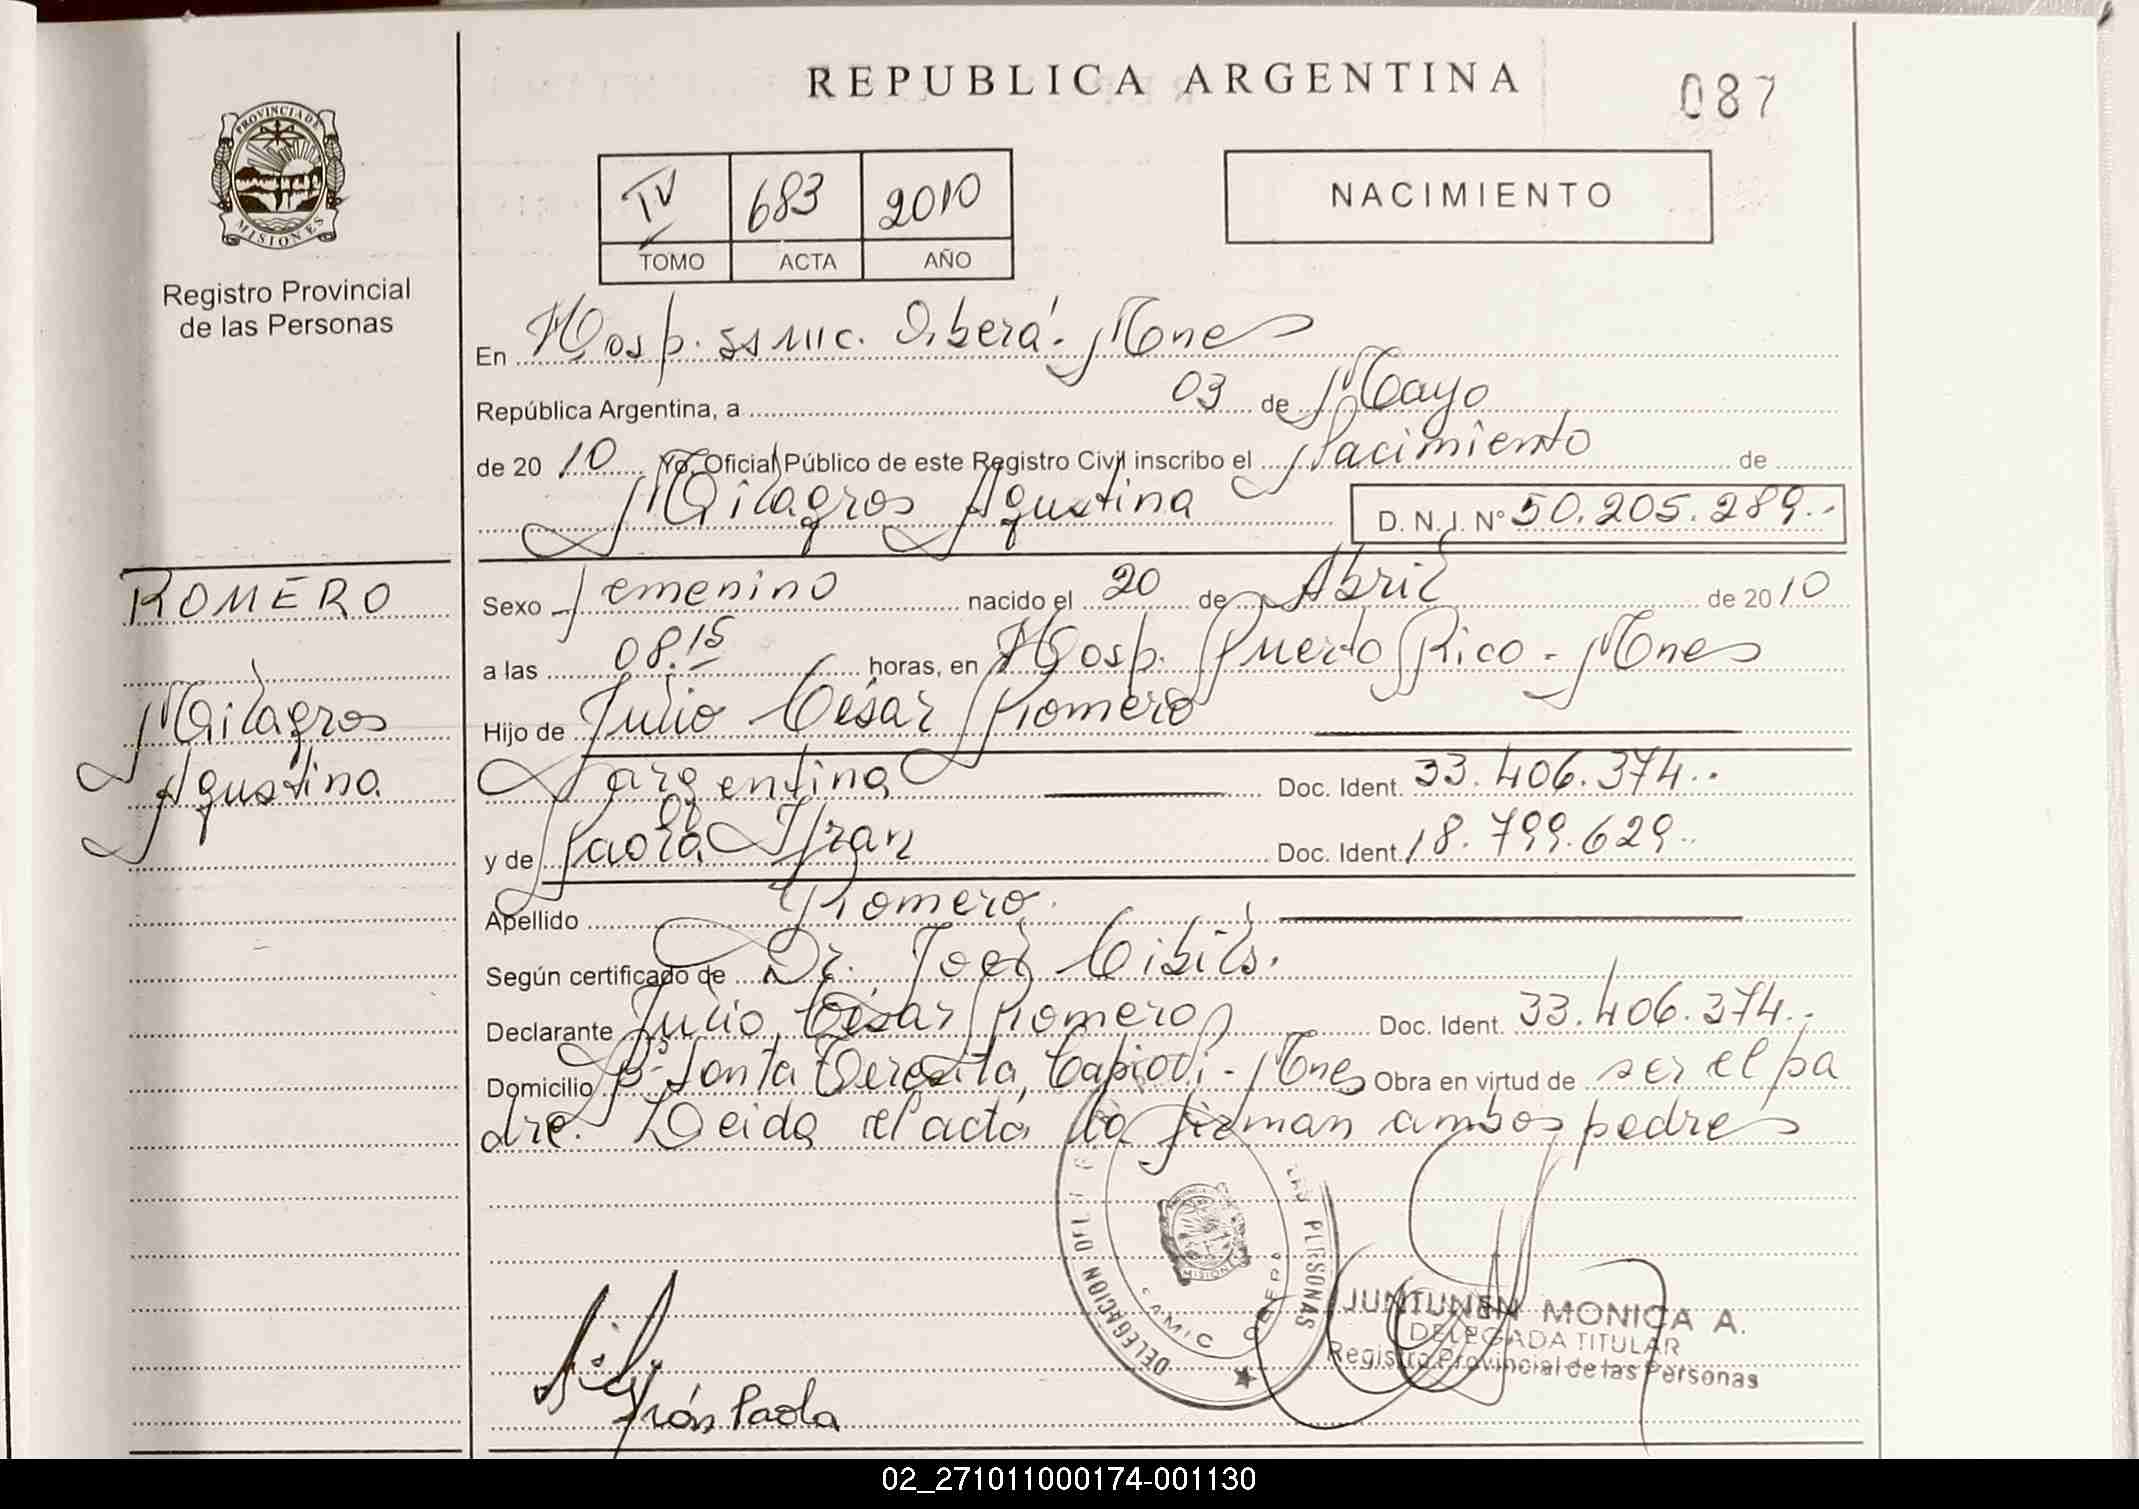 REPUBLICA ARGENTINA
087
PROVINCIA DE
MISIONES
Registro Provincial
de las Personas
IV 683 2010
TOMO ACTA AÑO
NACIMIENTO
En Hosp. SAMIC. Oberá. Mnes
República Argentina, a 03 de Mayo
de 2010 Yo, Oficial Público de este Registro Civil inscribo el Nacimiento de
Milagros Agustina D. N. I. N° 50.205.289.-
ROMERO
Milagros
Agustina
Sexo Femenino nacido el 20 de Abril de 2010
a las 08.15 horas, en Hosp. Puerto Rico - Mnes
Hijo de Julio César Romero
Argentina Doc. Ident. 33.406.374..
y de Paola Ifran Doc. Ident. 18.799.629..
Apellido Romero.
Según certificado de Dr. Joel Cibils.
Declarante Julio César Romero Doc. Ident. 33.406.374..
Domicilio Bº Santa Teresita, Capioví - Mnes Obra en virtud de ser el pa
dre. Leida el acta la firman ambos padres
DELEGACION DEL LAS PERSONAS
SAMIC OBERA
MISIONES
JUNTUNEN MONICA A.
DELEGADA TITULAR
Registro Provincial de las Personas
Ifrán Paola
02_271011000174-001130